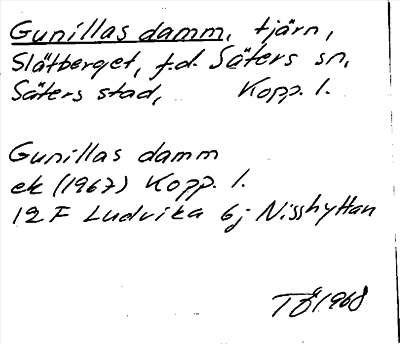 Gunillas damm, tjärn,
Slätberget, f.d. Säters sn,
Säters stad, Kopp. l.
Gunillas damm
ek (1967) Kopp. l.
12 F Ludvika 6j Nisshyttan
TÖ 1968